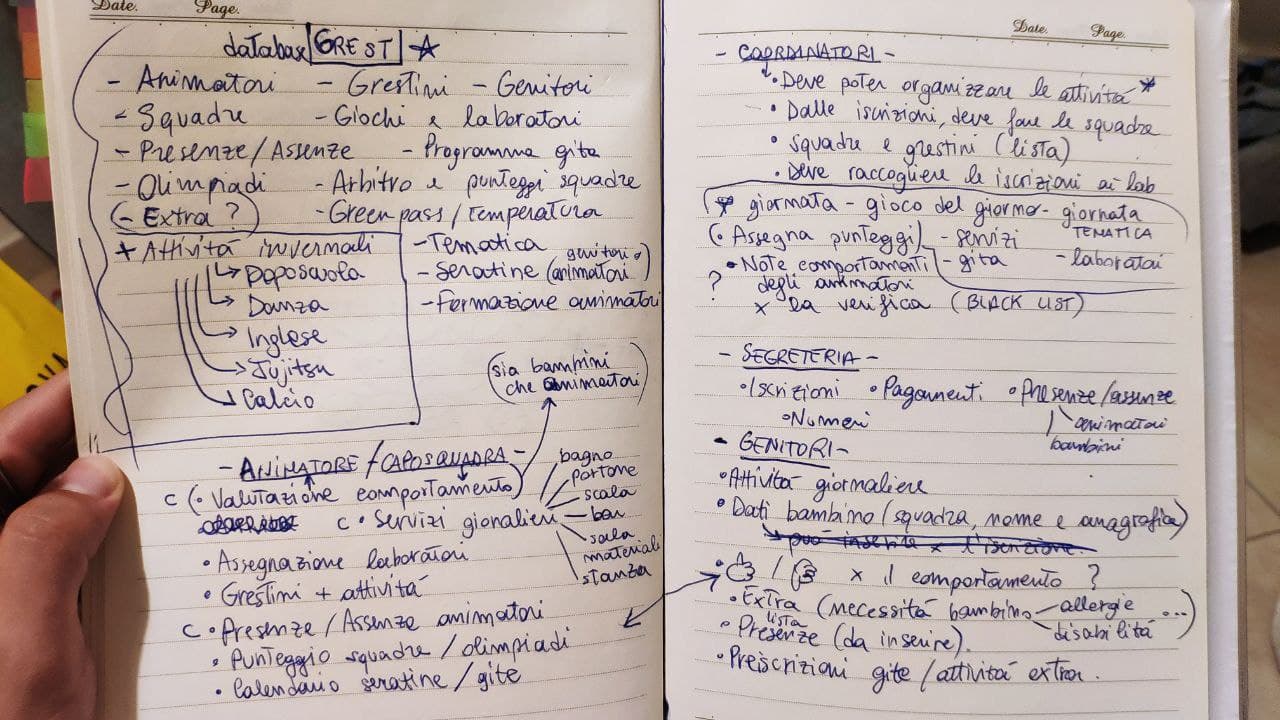 Date. Page.
database GREST ☆
- Animatori - Grestini - Genitori
- Squadre - Giochi e laboratori
- Presenze/Assenze - Programma gite
- Olimpiadi - Arbitro e punteggi squadre
(- Extra?) - Green pass/Temperatura
+ Attività invernali
→ Doposcuola
→ Danza
→ Inglese
→ Jujitsu
→ Calcio
- Tematica
- Seratine (genitori e animatori)
- Formazione animatori
(sia bambini
che animatori)
- ANIMATORE/CAPOSQUADRA -
C (• Valutazione comportamento)
C • Servizi gionalieri
bagno
portone
scala
bar
sala
materiali
stanza
• Assegnazione laboratori
• Grestini + attività
C • Presenze/Assenze animatori
• Punteggio squadre/olimpiadi
• Calendario seratine/gite
Date. Page.
- COORDINATORI -
• Deve poter organizzare le attività *
• Dalle iscrizioni, deve fare le squadre
• squadre e grestini (lista)
• Deve raccogliere le iscrizioni ai lab
* giornata - gioco del giorno - giornata TEMATICA
(• Assegna punteggi) - servizi
- gita - laboratori
• Note comportamenti
? degli animatori
x la verifica (BLACK LIST)
- SEGRETERIA -
• Iscrizioni • Pagamenti • Presenze/assenze
• Numeri
animatori
bambini
- GENITORI -
• Attività giornaliere
• Dati bambino (squadra, nome e anagrafica)
può inserire x l'iscrizione
• 👍 / 👎 x il comportamento?
• Extra (necessità bambino - allergie ...)
disabilità
lista
• Presenze (da inserire).
• Preiscrizioni gite/attività extra.